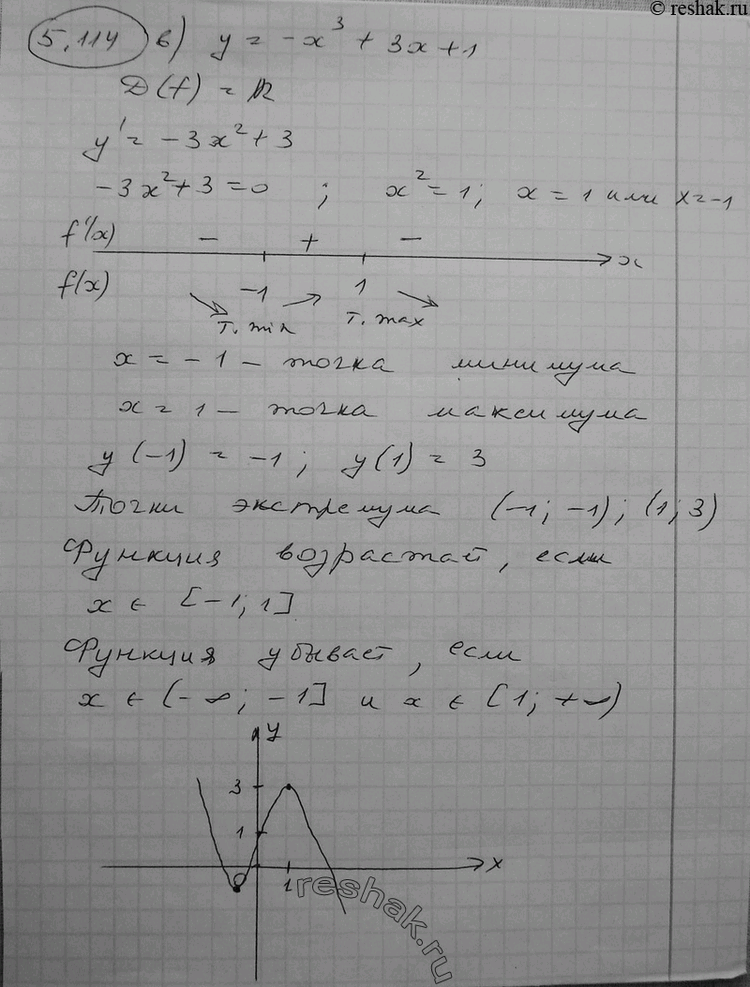 © reshak.ru
5.114 в) y = -x³ + 3x + 1
D(f) = R
y' = -3x² + 3
-3x² + 3 = 0 ; x² = 1; x = 1 или x = -1
f'(x) - + - x
f(x) -1 1
т. min т. max
x = -1 - точка минимума
x = 1 - точка максимума
y(-1) = -1; y(1) = 3
Точки экстремума (-1; -1); (1; 3)
Функция возрастай, если
x ∈ [-1; 1]
Функция убывает, если
x ∈ (-∞; -1] и x ∈ [1; +∞)
y
3
1
1 x
reshak.ru